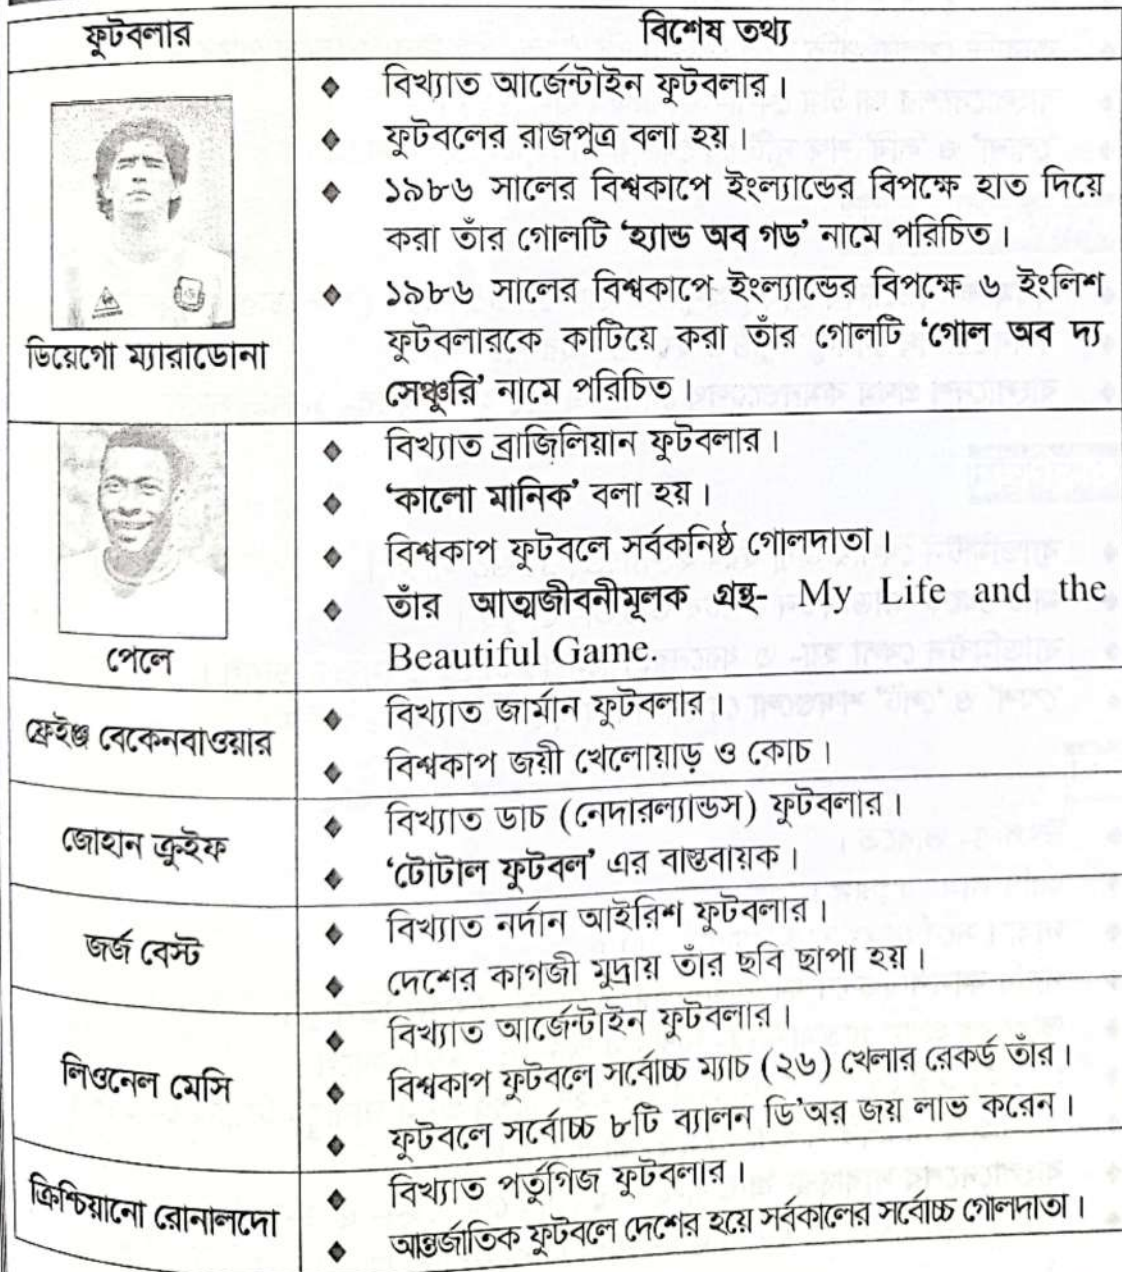 ফুটবলার
বিশেষ তথ্য
ডিয়েগো ম্যারাডোনা
◆ বিখ্যাত আর্জেন্টাইন ফুটবলার।
◆ ফুটবলের রাজপুত্র বলা হয়।
◆ ১৯৮৬ সালের বিশ্বকাপে ইংল্যান্ডের বিপক্ষে হাত দিয়ে
করা তাঁর গোলটি ‘হ্যান্ড অব গড’ নামে পরিচিত।
◆ ১৯৮৬ সালের বিশ্বকাপে ইংল্যান্ডের বিপক্ষে ৬ ইংলিশ
ফুটবলারকে কাটিয়ে করা তাঁর গোলটি ‘গোল অব দ্য
সেঞ্চুরি’ নামে পরিচিত।
পেলে
◆ বিখ্যাত ব্রাজিলিয়ান ফুটবলার।
◆ ‘কালো মানিক’ বলা হয়।
◆ বিশ্বকাপ ফুটবলে সর্বকনিষ্ঠ গোলদাতা।
◆ তাঁর আত্মজীবনীমূলক গ্রন্থ- My Life and the
Beautiful Game.
ফ্রেইঞ্জ বেকেনবাওয়ার
◆ বিখ্যাত জার্মান ফুটবলার।
◆ বিশ্বকাপ জয়ী খেলোয়াড় ও কোচ।
জোহান ক্রুইফ
◆ বিখ্যাত ডাচ (নেদারল্যান্ডস) ফুটবলার।
◆ ‘টোটাল ফুটবল’ এর বাস্তবায়ক।
জর্জ বেস্ট
◆ বিখ্যাত নর্দান আইরিশ ফুটবলার।
◆ দেশের কাগজী মুদ্রায় তাঁর ছবি ছাপা হয়।
লিওনেল মেসি
◆ বিখ্যাত আর্জেন্টাইন ফুটবলার।
◆ বিশ্বকাপ ফুটবলে সর্বোচ্চ ম্যাচ (২৬) খেলার রেকর্ড তাঁর।
◆ ফুটবলে সর্বোচ্চ ৮টি ব্যালন ডি’অর জয় লাভ করেন।
ক্রিশ্চিয়ানো রোনালদো
◆ বিখ্যাত পর্তুগিজ ফুটবলার।
◆ আন্তর্জাতিক ফুটবলে দেশের হয়ে সর্বকালের সর্বোচ্চ গোলদাতা।